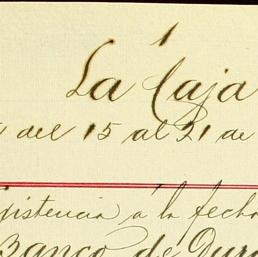 1
La Caja
del 15 al 21 de
existencia á la fecha
Banco de Dura